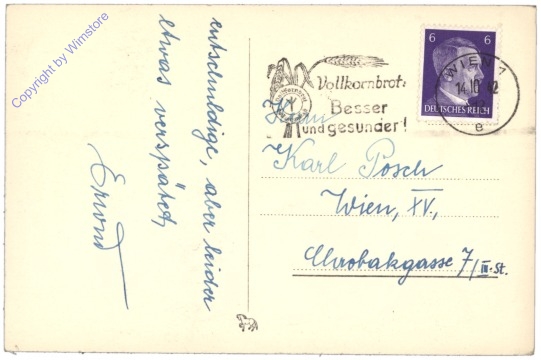 Copyright by Wimstore
entschuldige, aber leider
etwas verspätet,
Vollkornbrot:
Besser
und gesunder!
6 6
DEUTSCHES REICH
WIEN 1
14.10.
e
Herrn
Karl Posch
Wien, XV.,
Chrobakgasse 7/III. St.